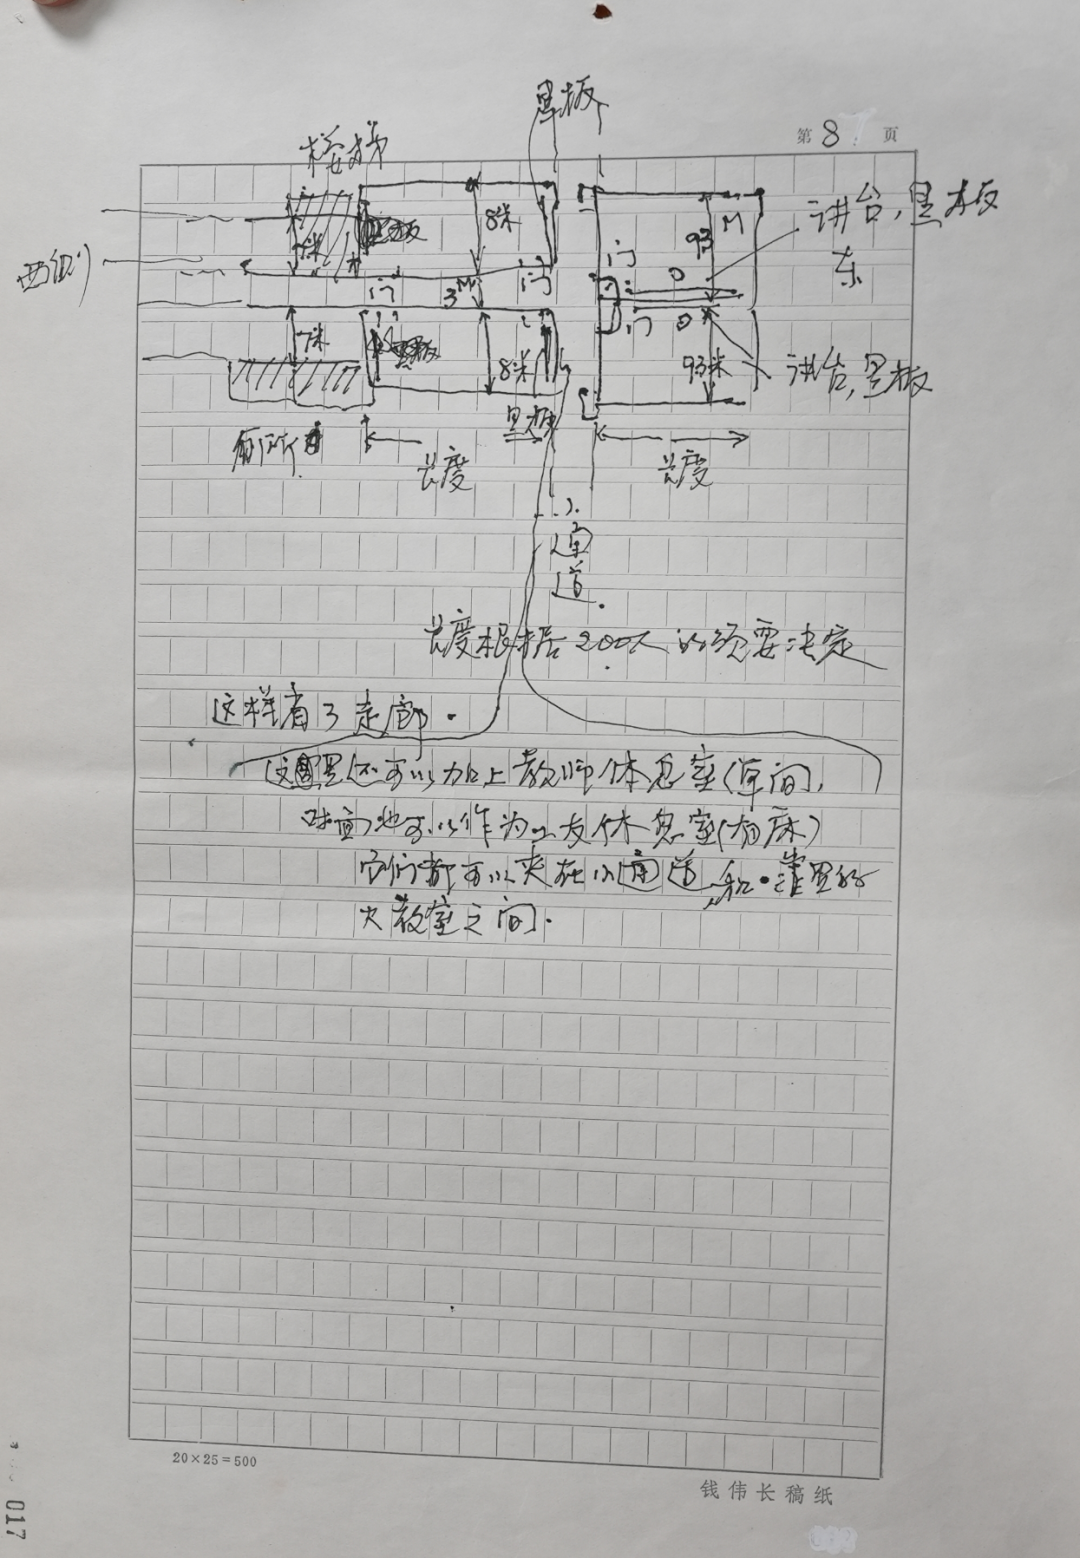 黑板
第 8 页
楼梯
8米
93M
讲台,黑板
7米
门
东
西侧
门
3M
门
门
7米
黑板
8米
93米
讲台,黑板
黑板
厕所
长度
长度
小
通
道.
长度根据200人的须要决定
这样省了走廊.
这里还可以加上教师休息室(单间,
对面也可以作为工友休息室(有床)
它们都可以夹在小通道和靠里的
大教室之间.
20×25=500
钱伟长稿纸
017